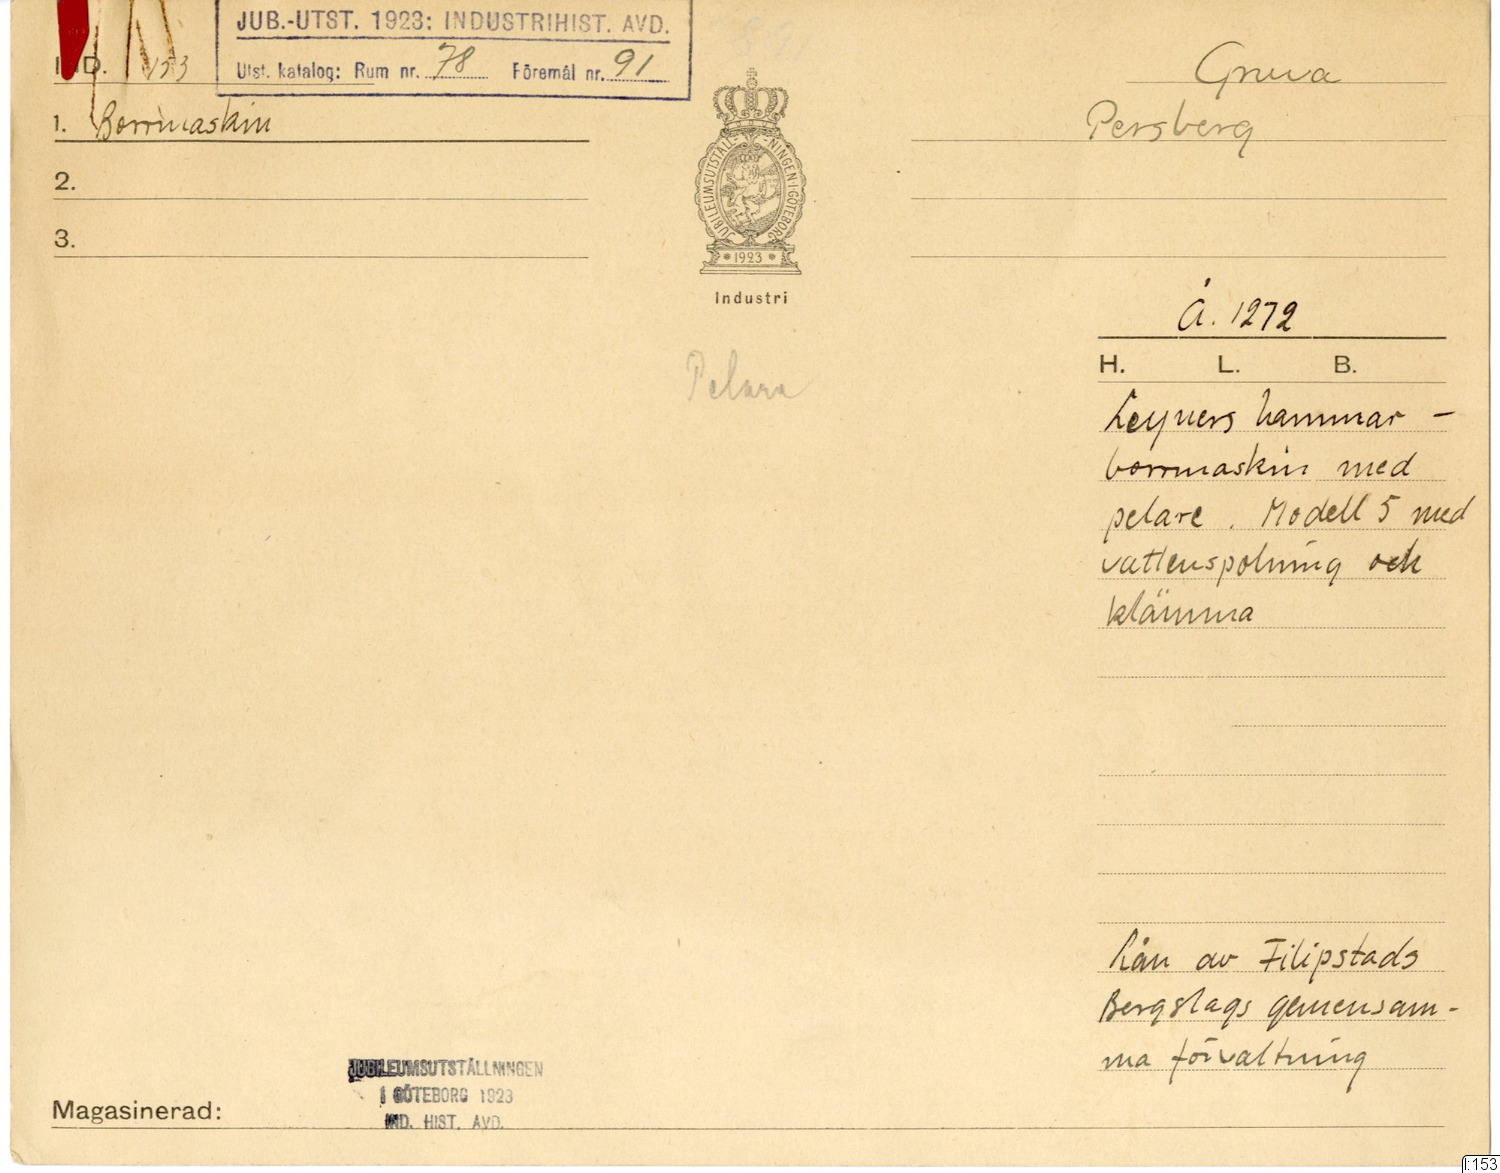 JUB.-UTST. 1923: INDUSTRIHIST. AVD.
IND. 153
Utst. katalog: Rum nr. 78 Föremål nr. 91
Gruva
1. Borrmaskin
Persberg
2.
3.
JUBILEUMSUTSTÄLLNINGEN I GÖTEBORG
1923
Industri
Å. 1272
H. L. B.
Pelare
Leyners hammar-
borrmaskin med
pelare. Modell 5 med
vattenspolning och
klämma
Lån av Filipstads
Bergslags gemensam-
ma förvaltning
JUBILEUMSUTSTÄLLNINGEN
I GÖTEBORG 1923
IND. HIST. AVD.
Magasinerad:
I:153